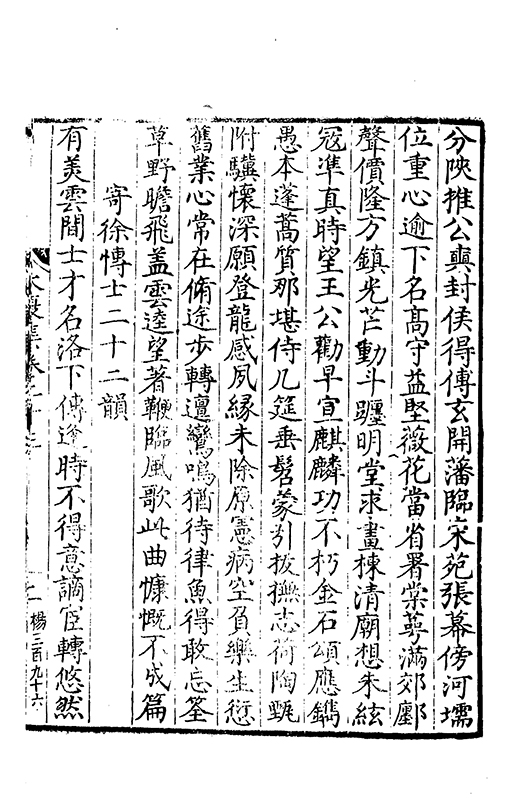 分陝推公輿封侯得傅玄開藩臨宋苑張幕傍河壖
位重心逾下名髙守益堅薇花當省署棠蕚滿郊鄽
聲價隆方鎮光芒動斗躔明堂求畫棟清廟想朱絃
冠準真時望王公勸早宣麒麟功不朽金石頌應鐫
愚本蓬蒿質那堪侍几筵垂髫蒙引拔撫志荷陶甄
附驥懷深願登龍感夙緣未除原憲病空負樂生愆
舊業心常在脩途步轉邅鸞鳴猶待律魚得敢忘筌
草野瞻飛盖雲逵望著鞭臨風歌此曲慷慨不成篇
寄徐愽士二十二韻
有美雲間士才名洛下傳逢時不得意謫宦轉悠然
集卷
楊三百九十六